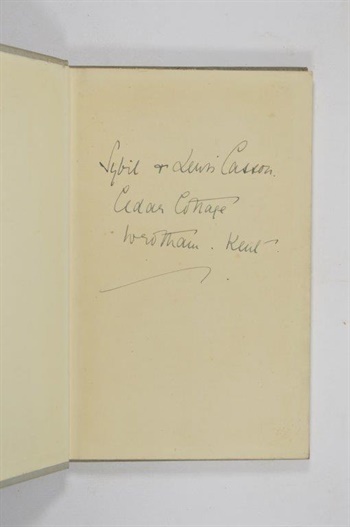 Sybil & Lewis Casson.
Cedar Cottage
Wrotham. Kent.